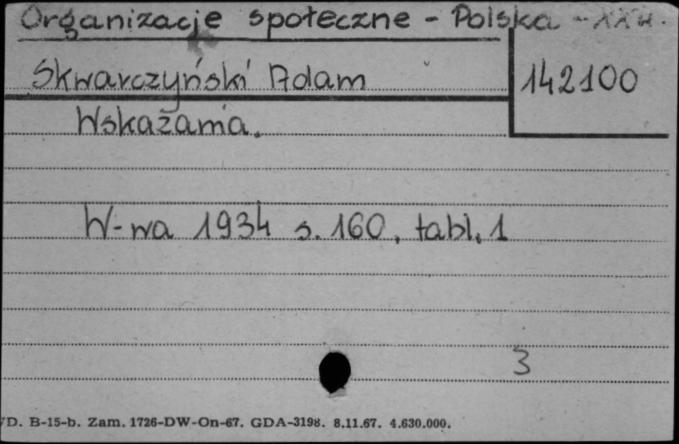 Organizacje społeczne - Polska - XX w.
Skwarczyński Adam
142100
Wskazania.
W-wa 1934 s. 160, tabl. 1
3
D. B-15-b. Zam. 1726-DW-On-67. GDA-3198. 8.11.67. 4.630.000.